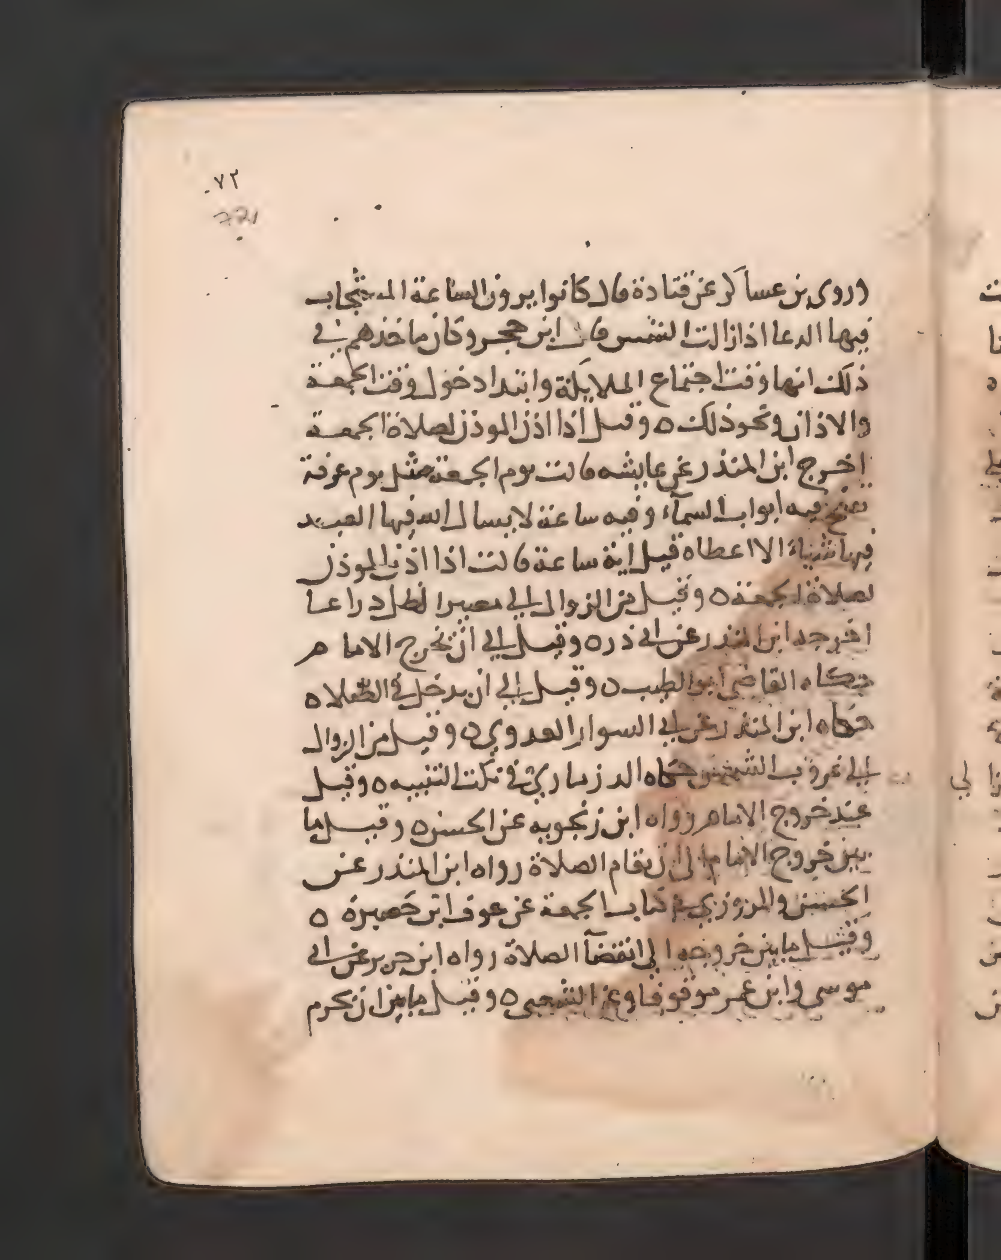 ٧٢
وروى بن عساكر عن قتادة قال كانوا يرون الساعة المستجاب
فيها الدعا اذا زالت الشمس قال ابن حجر وكان ماخذهم في
ذلك انها وقت اجتماع الملايكة وابتدا دخول وقت الجمعة
والاذان ونحو ذلك ٥ وقيل اذا اذن الموذن لصلاة الجمعة
اخرج ابن المنذر عن عايشه قالت يوم الجمعة مثل يوم عرفة
تفتح فيه ابواب السمآء وفيه ساعة لا يسال الله فيها العبد
فيها شياء الا اعطاه قيل اية ساعة قالت اذا اذن الموذن
لصلاة الجمعة ٥ وقيل من الزوال الى مصير الظل ذراعا
اخرجه ابن المنذر عن ابي ذر ٥ وقيل الى ان يخرج الامام
حكاه القاضي ابو الطيب ٥ وقيل الى ان يدخل في الصلاه
حكاه ابن المنذر عن ابي السوار العدوي ٥ وقيل من الزوال
الى غروب الشمس حكاه الدزماري في نكت التنبيه ٥ وقيل
عند خروج الامام رواه ابن زنجويه عن الحسن ٥ وقيل ما
بين خروج الامام الى ان تقام الصلاة رواه ابن المنذر عن
الحسن والمروزي في كتاب الجمعة عن عوف ابن حصيرة ٥
وقيل ما بين خروجه الى انقضآ الصلاة رواه ابن جرير عن ابي
موسى وابن عمر موقوفا وعن الشعبي ٥ وقيل ما بين ان يحرم